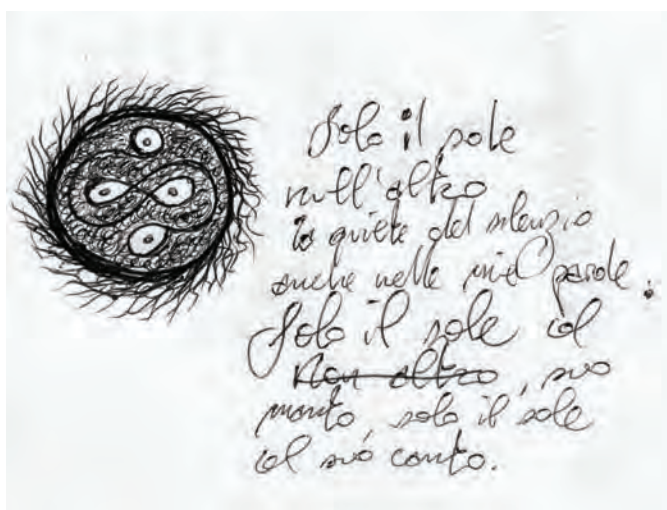 Solo il sole
null'altro
la quiete del silenzio
anche nelle mie parole.
Solo il sole col
Non altro, suo
manto, solo il sole
col suo canto.